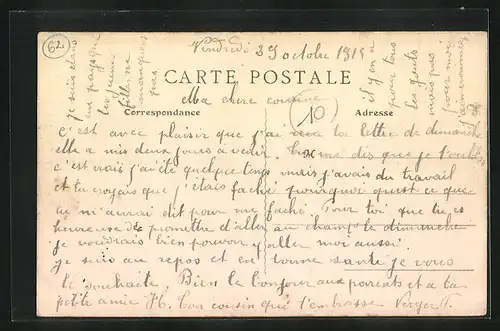 62
Vendredi 29 octobre 1915
CARTE POSTALE
Ma chere cousine
Correspondance
Adresse
10
c'est avec plaisir que j'ai la lettre de dimanche
elle a mis deux jours a venir. tu me dis que je t'oublie
c'est vrai j'ai été quelque temps mais j'avais du travail
et tu croyais que j'étais faché pourquoi quest ce que
tu m'aurai dit pour me faché Pour toi que tu es
heureuse de promettre d'aller au champs le dimanche
je voudrais bien pouvoir y aller moi aussi.
je suis au repos et en bonne santé je vous
le souhaite. Bien le bonjour aux parents et a ta
petite amie H. ton cousin qui t'embrasse Verger
je suis dans
un pays que
les jeunes
filles ne
manques
pas
il y en a
pour tous
les gouts